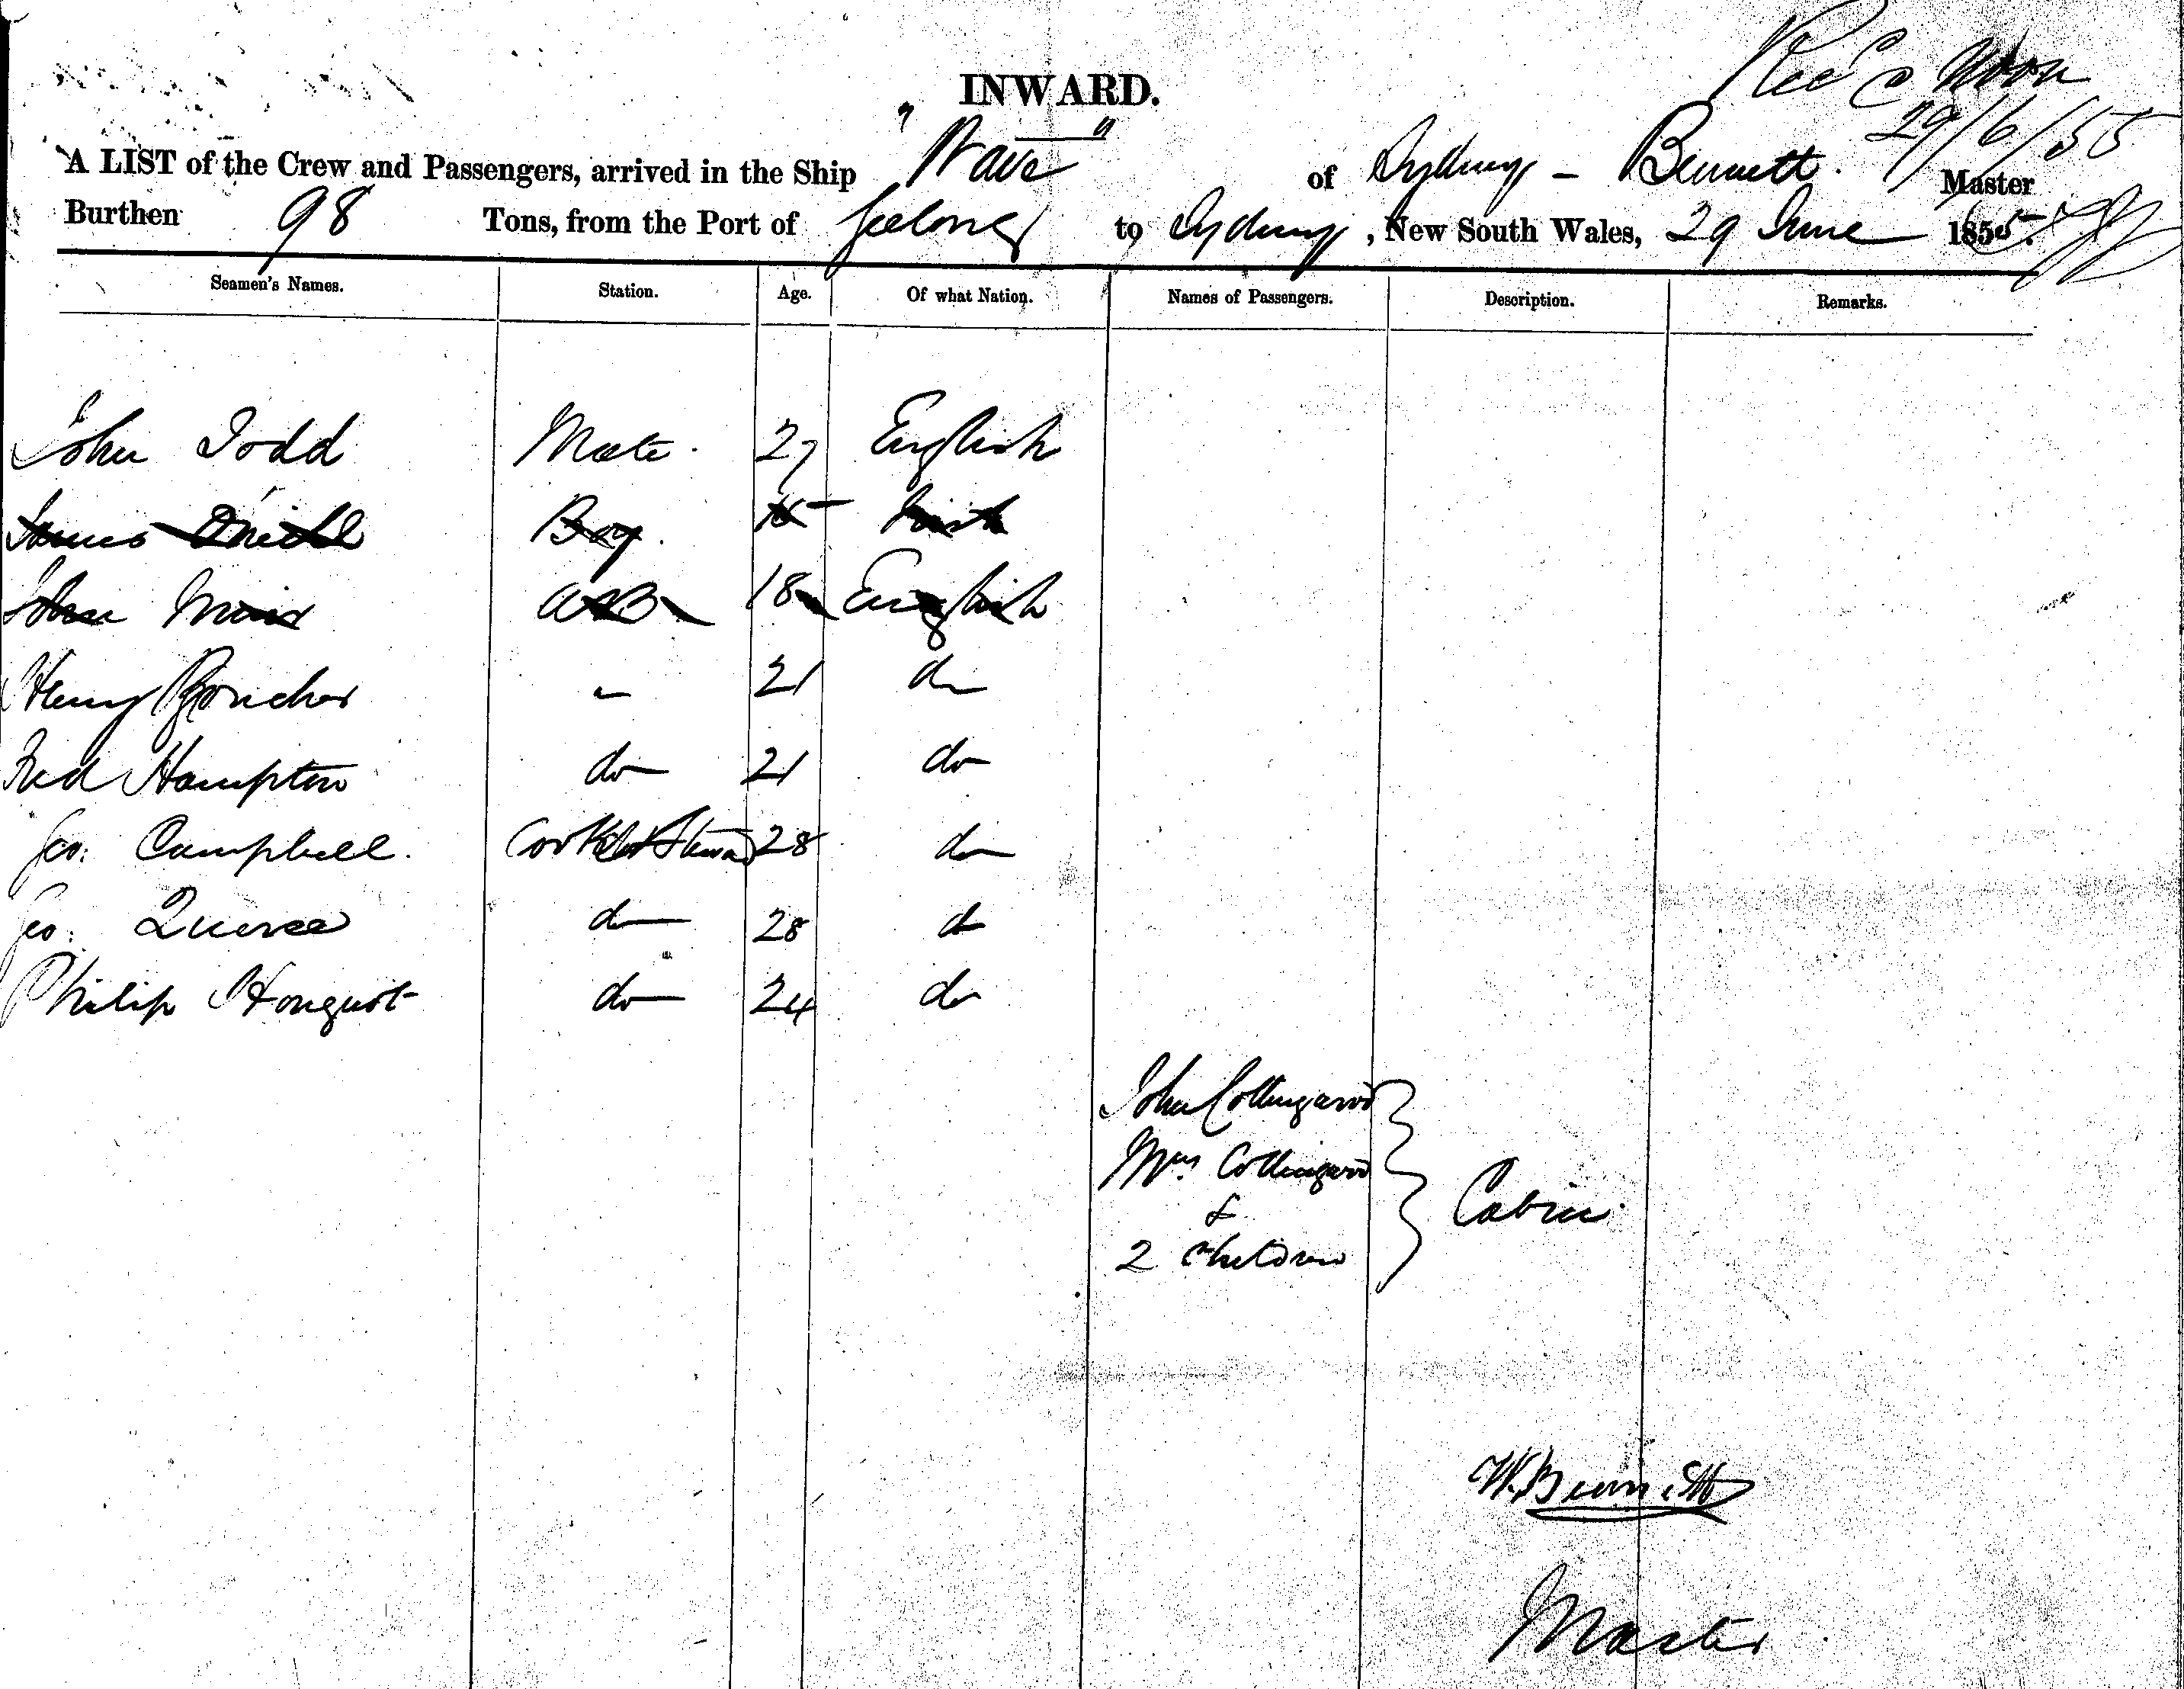 Recd @ Noon
29/6/55
INWARD.
A LIST of the Crew and Passengers, arrived in the Ship "Wave" of Sydney - Bennett. Master
Burthen 98 Tons, from the Port of Geelong to Sydney, New South Wales, 29 June 1855.
Seamen's Names. Station. Age. Of what Nation. Names of Passengers. Description. Remarks.
John Todd Mate. 27 English
James Boy. 15 Irish
John Muir AB 18 English
Henry 21 do
Fred Hampton do 21 do
Geo: Campbell. Cook & Steward 28 do
Geo: do 28 do
Philip do 24 do
John Collingwood
Mrs. Collingwood
&
2 Children
Cabin
W. Bennett
Master